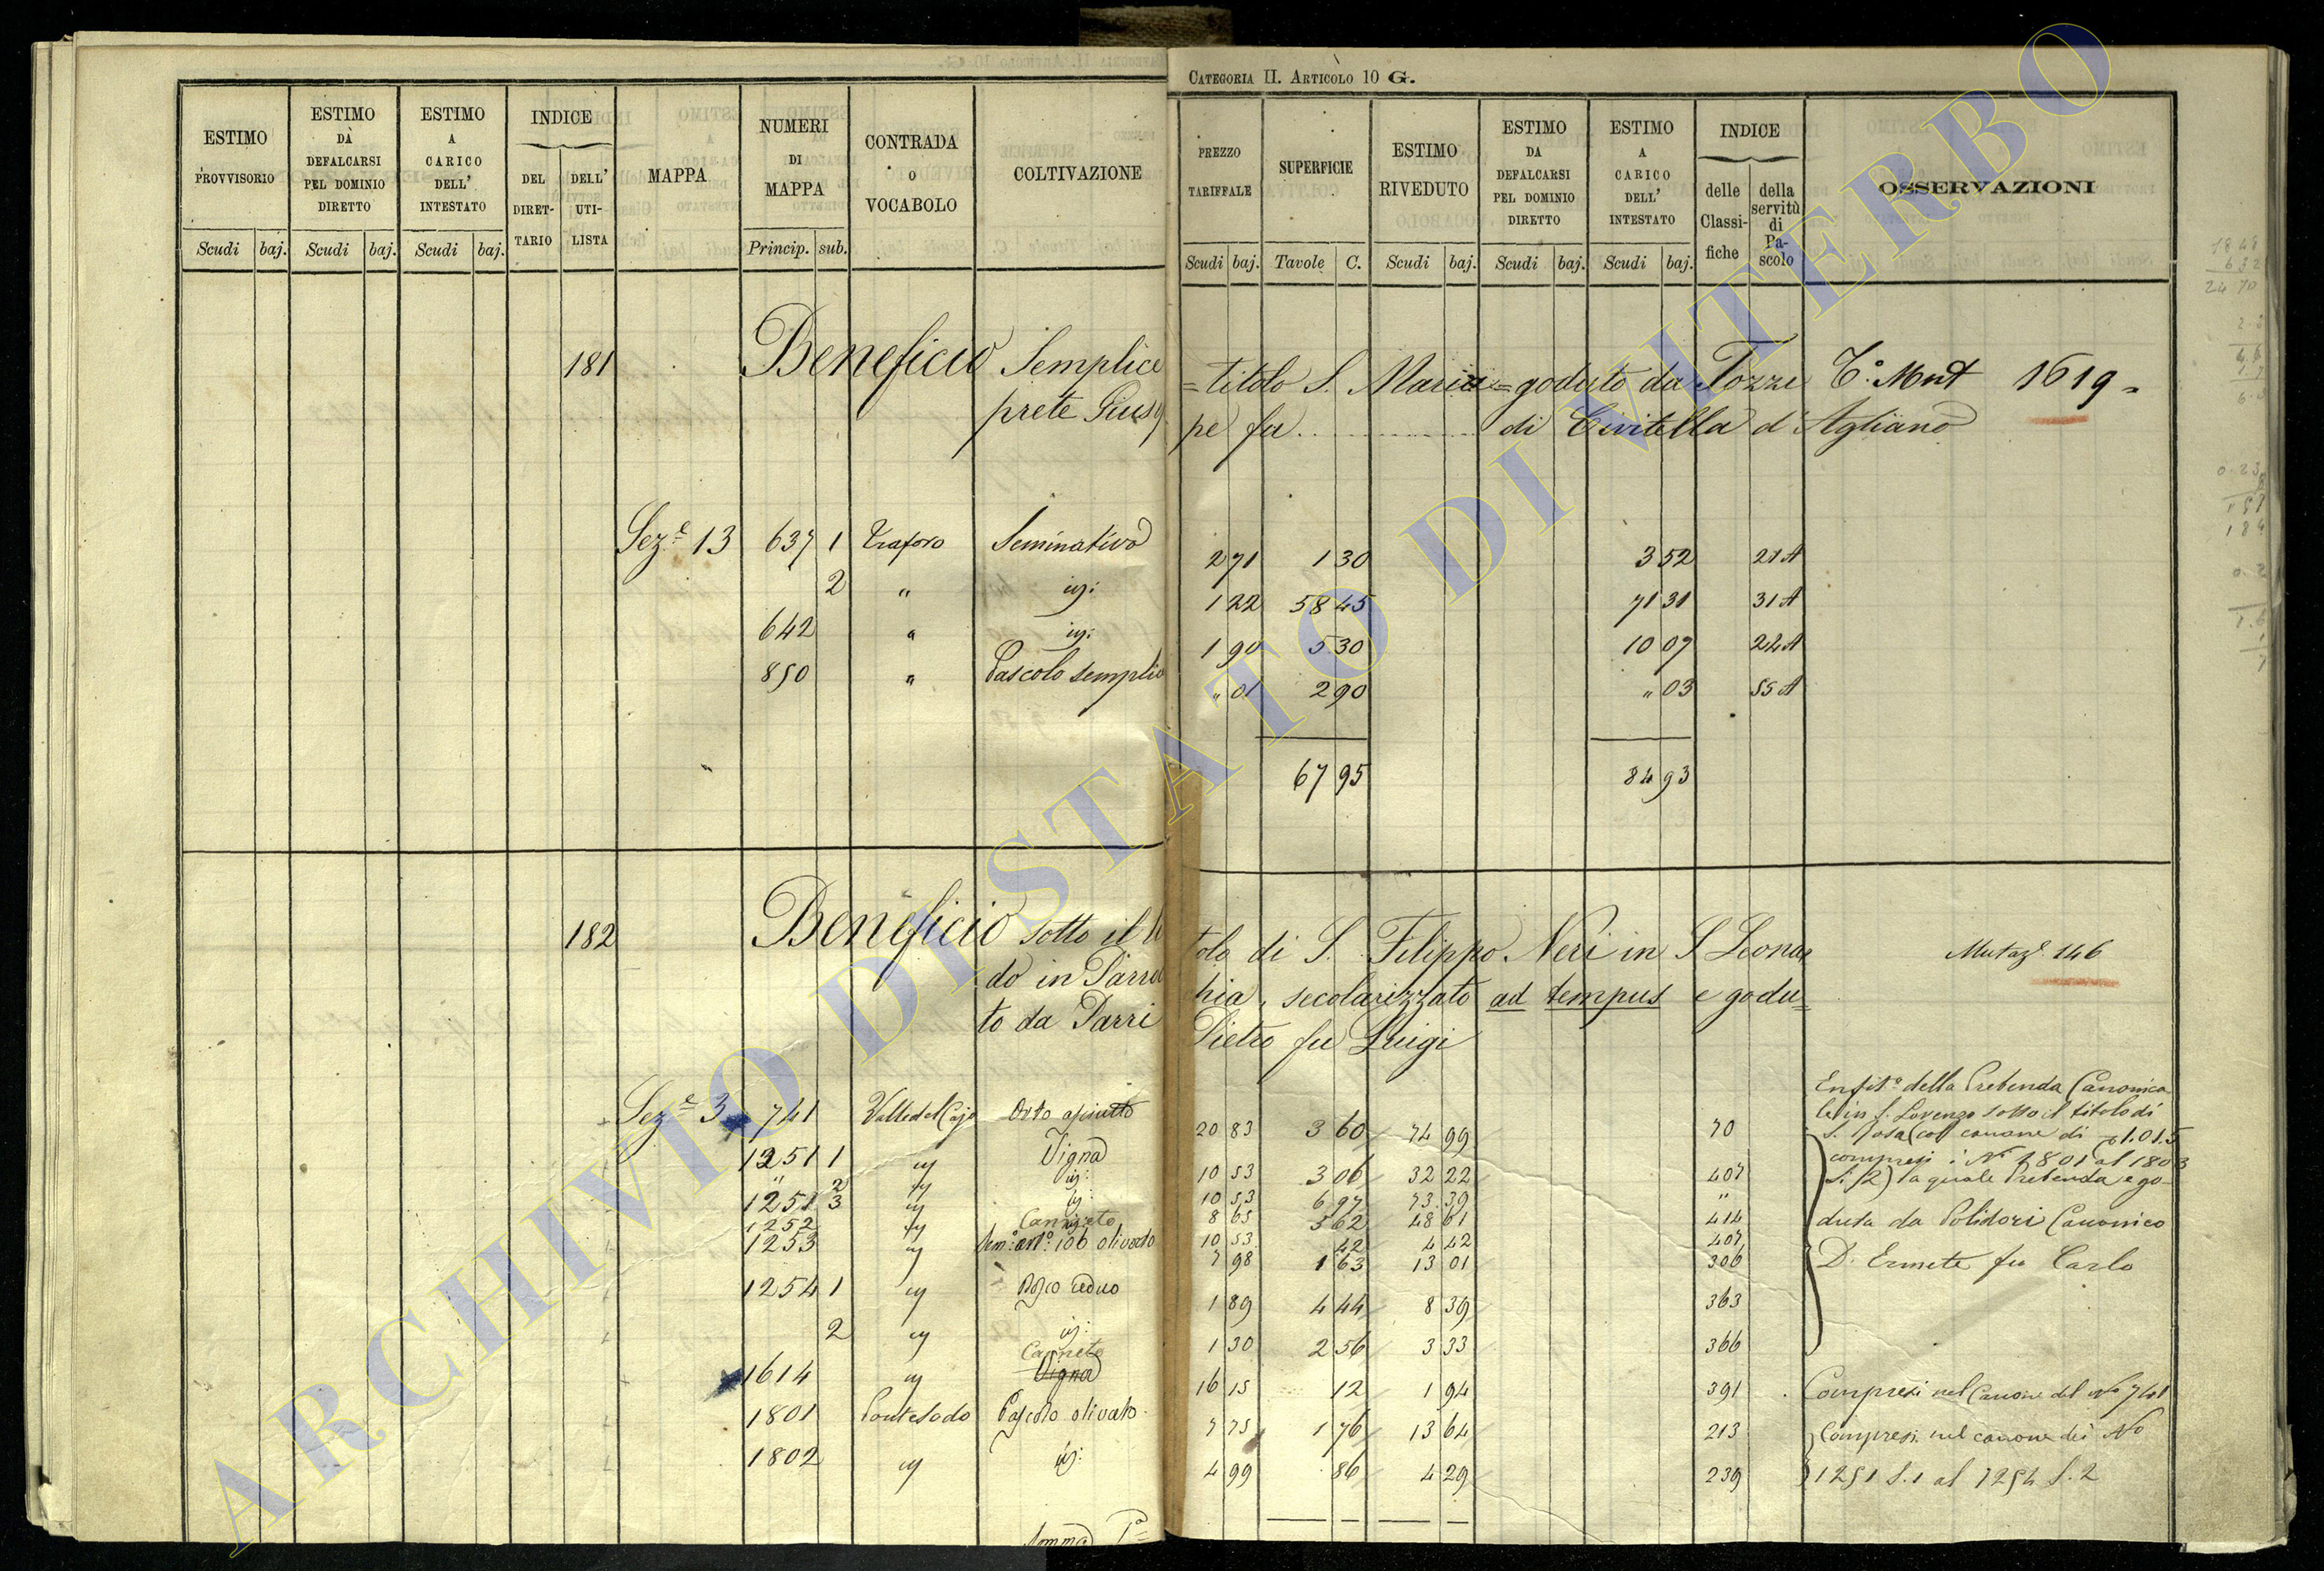 CATEGORIA II. ARTICOLO 10 G.
ESTIMO PROVVISORIO Scudi baj.
ESTIMO DA DEFALCARSI PEL DOMINIO DIRETTO Scudi baj.
ESTIMO A CARICO DELL' INTESTATO Scudi baj.
INDICE DEL DIRET-TARIO DELL' UTI-LISTA
MAPPA
NUMERI DI MAPPA Princip. sub.
CONTRADA O VOCABOLO
COLTIVAZIONE
PREZZO TARIFFALE Scudi baj.
SUPERFICIE Tavole C.
ESTIMO RIVEDUTO Scudi baj.
ESTIMO DA DEFALCARSI PEL DOMINIO DIRETTO Scudi baj.
ESTIMO A CARICO DELL' INTESTATO Scudi baj.
INDICE delle Classi-fiche della servitù di Pa-scolo
OSSERVAZIONI
181 Beneficio Semplice = titolo S. Maria = goduto da Tozzi 1619
prete Giusep pe fu di Civitella d'Agliano
Seze 13 637 1 Traforo Seminativo 2 71 1 30 3 52 21 A
2 " id: 1 22 58 45 71 31 31 A
642 " id: 1 90 5 30 10 07 22 A
850 " Pascolo semplice " 01 2 90 " 03 55 A
67 95 84 93
182 Beneficio sotto il ti tolo di S. Filippo Neri in S Leonar Mutaze 146
do in Parroc chia, secolarizzato ad tempus e godu=
to da Parri Pietro fu Luigi
Seze 3 741 Valle del Cajo Orto asciutto 20 83 3 60 74 99 70
1251 1 id Vigna 10 53 3 06 32 22 407
" 2 id id: 10 53 6 97 73 39 "
1251 3 id id: 8 65 5 62 48 61 414
1252 id Canneto 10 53 42 4 42 407
1253 id Semo arto 106 olivato 7 98 1 63 13 01 306
1254 1 id Bosco ceduo 1 89 4 44 8 39 363
2 id id: 1 30 2 56 3 33 366
1614 id Canneto Vigna 16 15 12 1 94 391
1801 Pontesodo Pascolo olivato 7 75 1 76 13 64 213
1802 id id: 4 99 86 4 29 239
Enfita della Prebenda Canonica
le in S. Lorenzo sotto il titolo di
S. Rosa (col canone di 1.01.5
compresi i Ni 1801 al 1803
S. 2) la quale Prebenda e go
duta da Polidori Canonico
D. Ermete fu Carlo
Compresi nel Canone del No 741
Compresi nel canone dei No
1251 S. 1 al 1254 S. 2
Somma Pa
ARCHIVIO DI STATO DI VITERBO